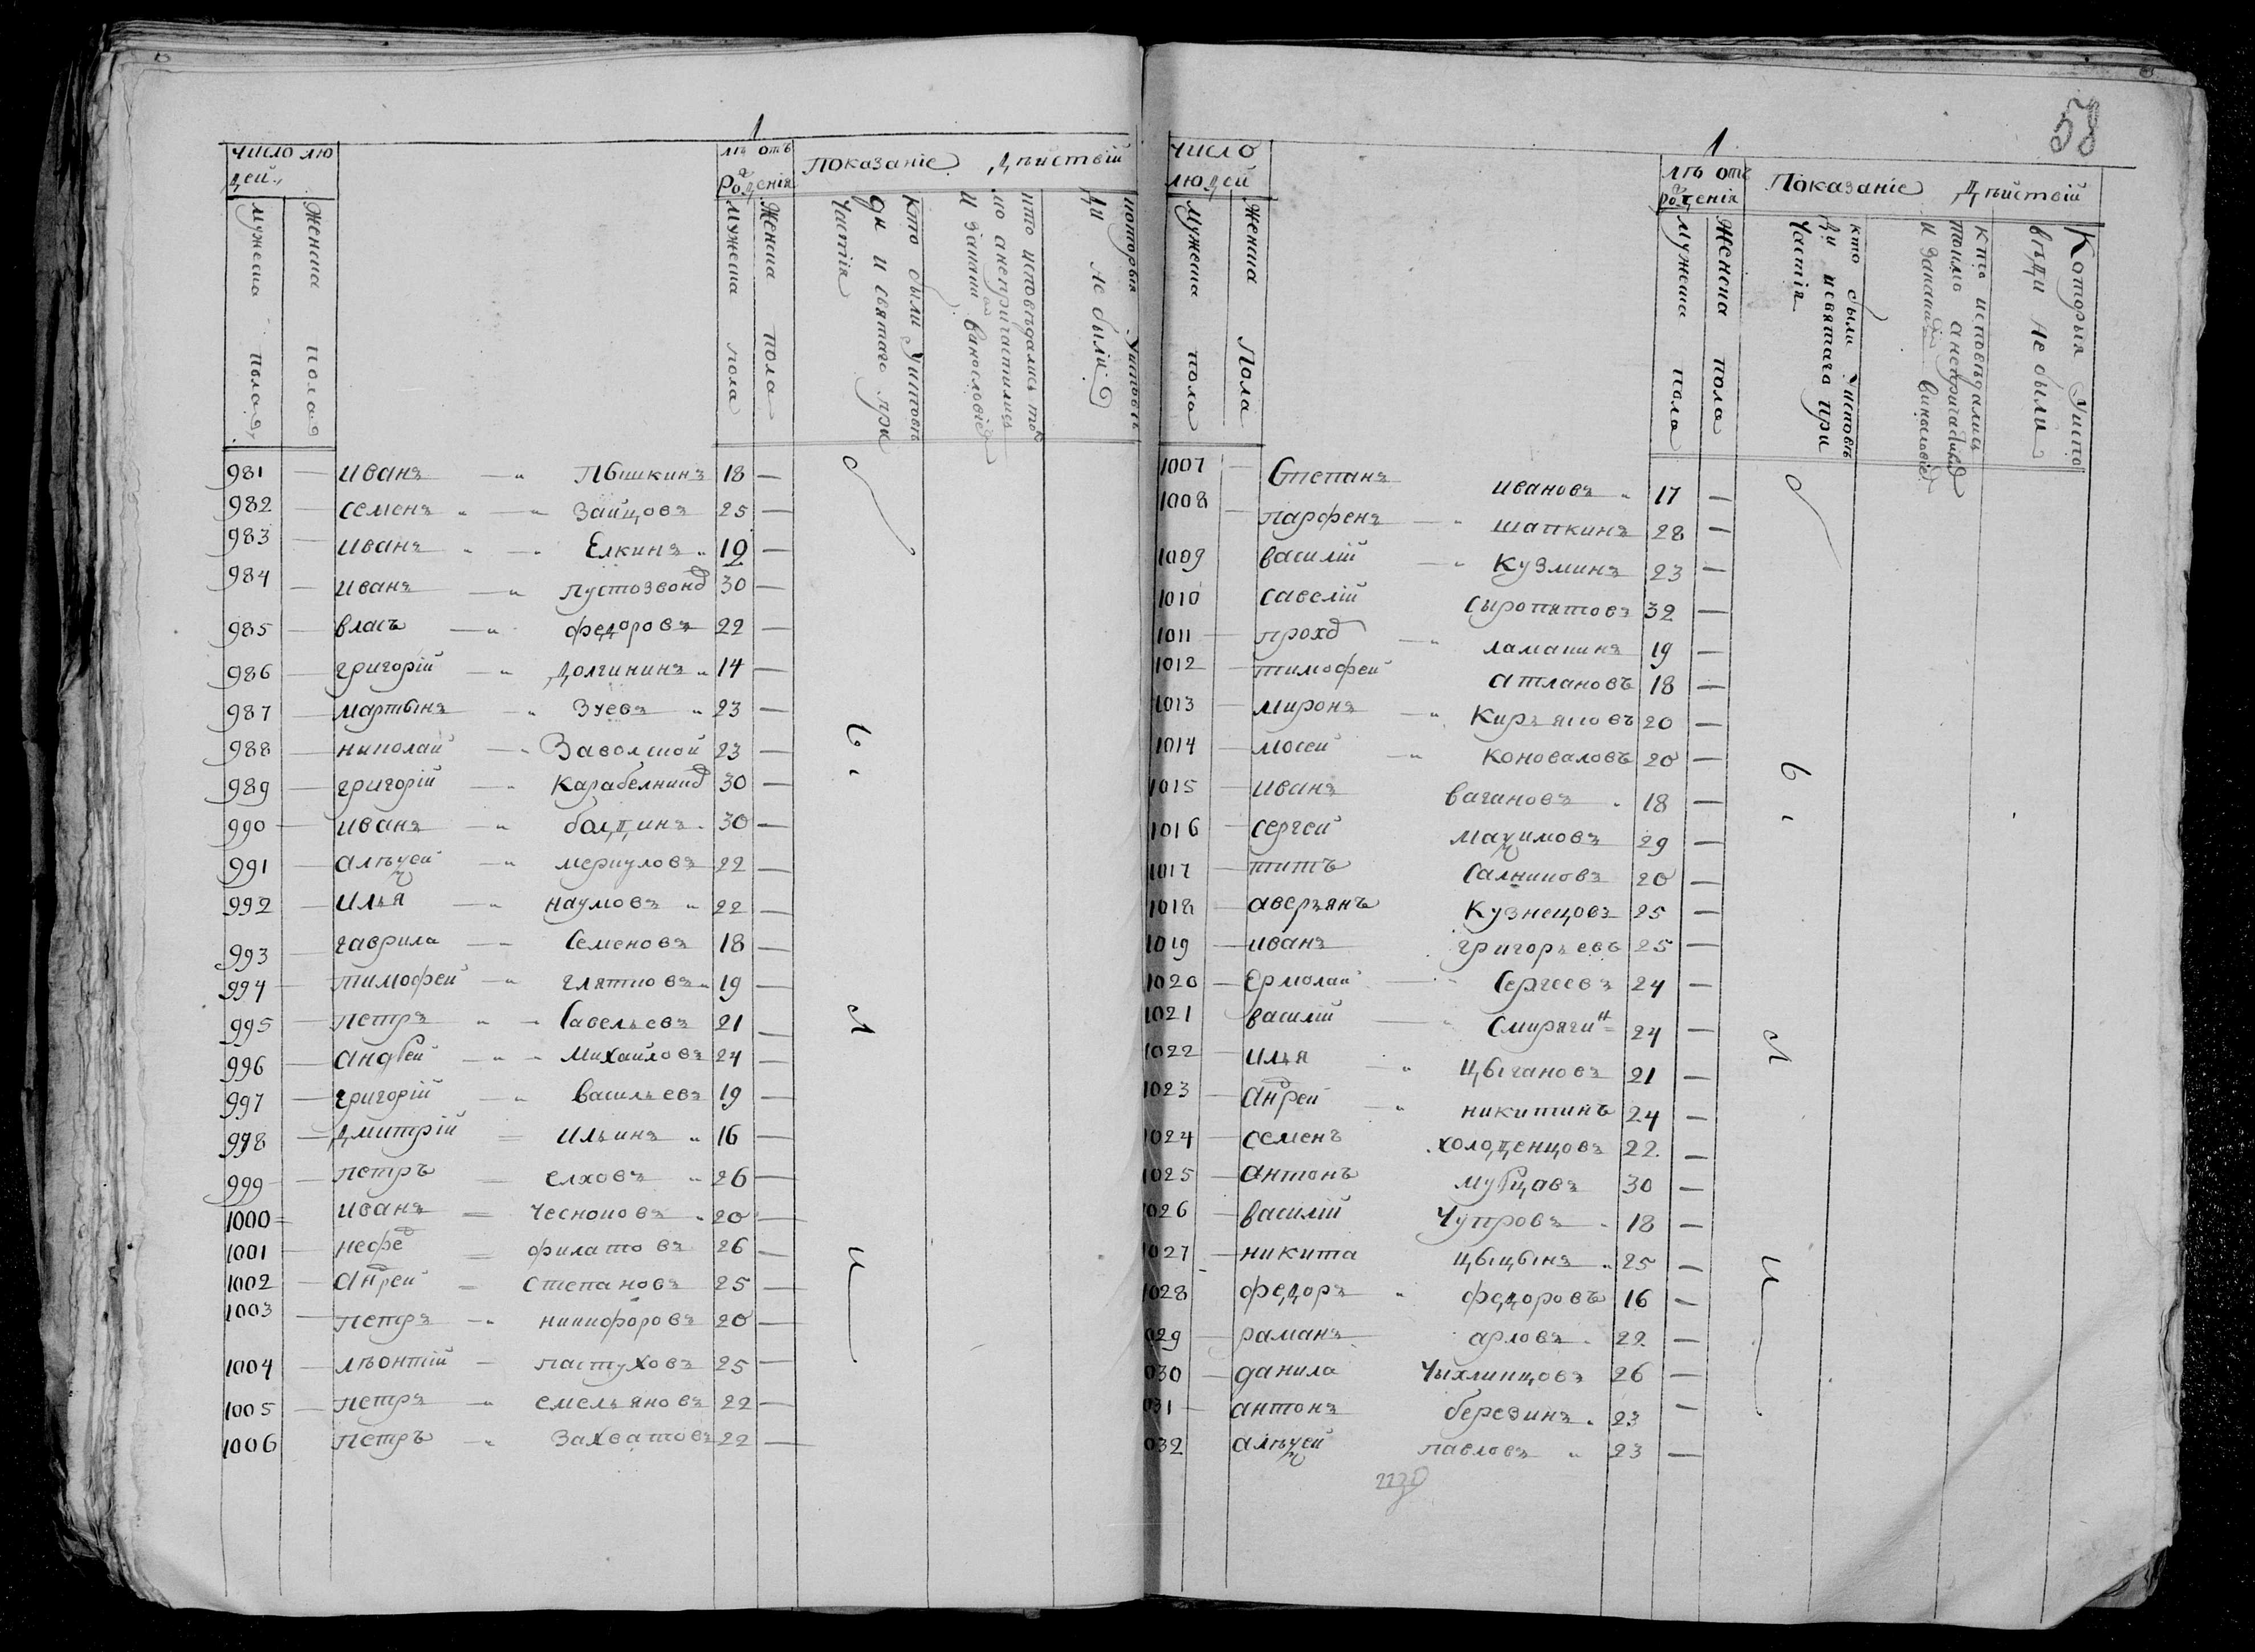 1
число лю
дей
мужеска пола
женска пола
лѣ отъ
рождения
мужеска пола
женска пола
показаніе дѣиствій
кто были уисповѣ
ди и святаго при
частія
кто исповѣдались то
ко а непричастились
и заканимъ винословіемъ
которыя уисповѣ
ди не были
981 — иванъ — пышкинъ 18 —
982 — семенъ — заицовъ 25 —
983 — иванъ — Елкинъ 19 —
984 — иванъ — пустозвонъ 30 —
985 — власъ — федоровъ 22 —
986 — григорій — долгининъ 14 —
987 — мартынъ — Зуевъ 23 —
988 — николай — Заволской 23 —
989 — григорій — карабелникъ 30 —
990 — иванъ — 30 —
991 — алѣѯей — меркуловъ 22 —
992 — илья — наумовъ 22 —
993 — гаврила — Семеновъ 18 —
994 — тимофей — глятковъ 19 —
995 — петръ — Савельевъ 21 —
996 — андрей — михайловъ 24 —
997 — григорій — васильевъ 19 —
998 — дмитрій — ильинъ 16 —
999 — петръ — елховъ 26 —
1000 — иванъ — чесноковъ 20 —
1001 — нефедъ — филатовъ 26 —
1002 — андрей — степановъ 25 —
1003 — петръ — никифоровъ 20 —
1004 — лѣонтій — пастуховъ 25 —
1005 — петръ — емельяновъ 22 —
1006 петръ — захватовъ 22 —
б
ы
л
и
58
1
число
людей
мужеска пола
женска пола
лѣ отъ
рождения
мужеска пола
женска пола
Показаніе дѣйствій
кто были уисповѣ
ди исвятага при
частія
кто исповѣдались
токмо анепричастились
и заканимъ винословіемъ
Которыя уиспо
вѣди не были
1007 — Степанъ ивановъ 17 —
1008 — парфенъ — шапкинъ 28 —
1009 василій — кузминъ 23 —
1010 савелій сыропятовъ 32 —
1011 — прохъ — ламакинъ 19 —
1012 — тимофей атлановъ 18 —
1013 — миронъ — Кирьяковъ 20 —
1014 — мосей — коноваловъ 20 —
1015 — иванъ вагановъ 18 —
1016 — сергей маѯимовъ 29 —
1017 — титъ Салниковъ 20 —
1018 — аверьянъ кузнецовъ 25 —
1019 — иванъ григорьевъ 25 —
1020 — Ермолай — Сергеевъ 24 —
1021 василій — Смирягинъ 24 —
1022 — илья — цыгановъ 21 —
1023 — андрей — никитинъ 24 —
1024 — семенъ холоденцовъ 22 —
1025 — антонъ 30 —
1026 — василій Чупровъ 18 —
1027 — никита цыцынъ 25 —
1028 федоръ федоровъ 16 —
029 — раманъ арловъ 22 —
030 — данила чыхлинцовъ 26 —
031 — антонъ березинъ 23 —
032 алѣѯей павловъ 23 —
б
ы
л
и